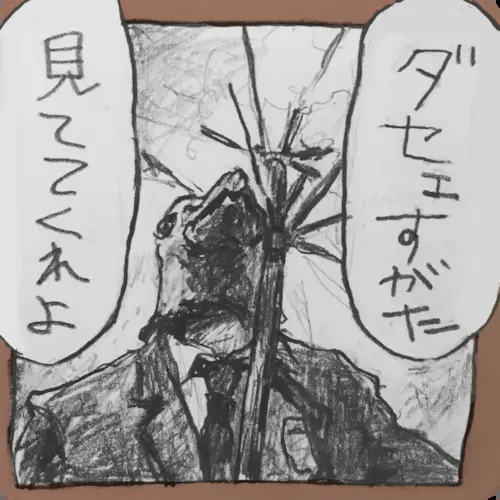 ダセェすがた
見ててくれよ